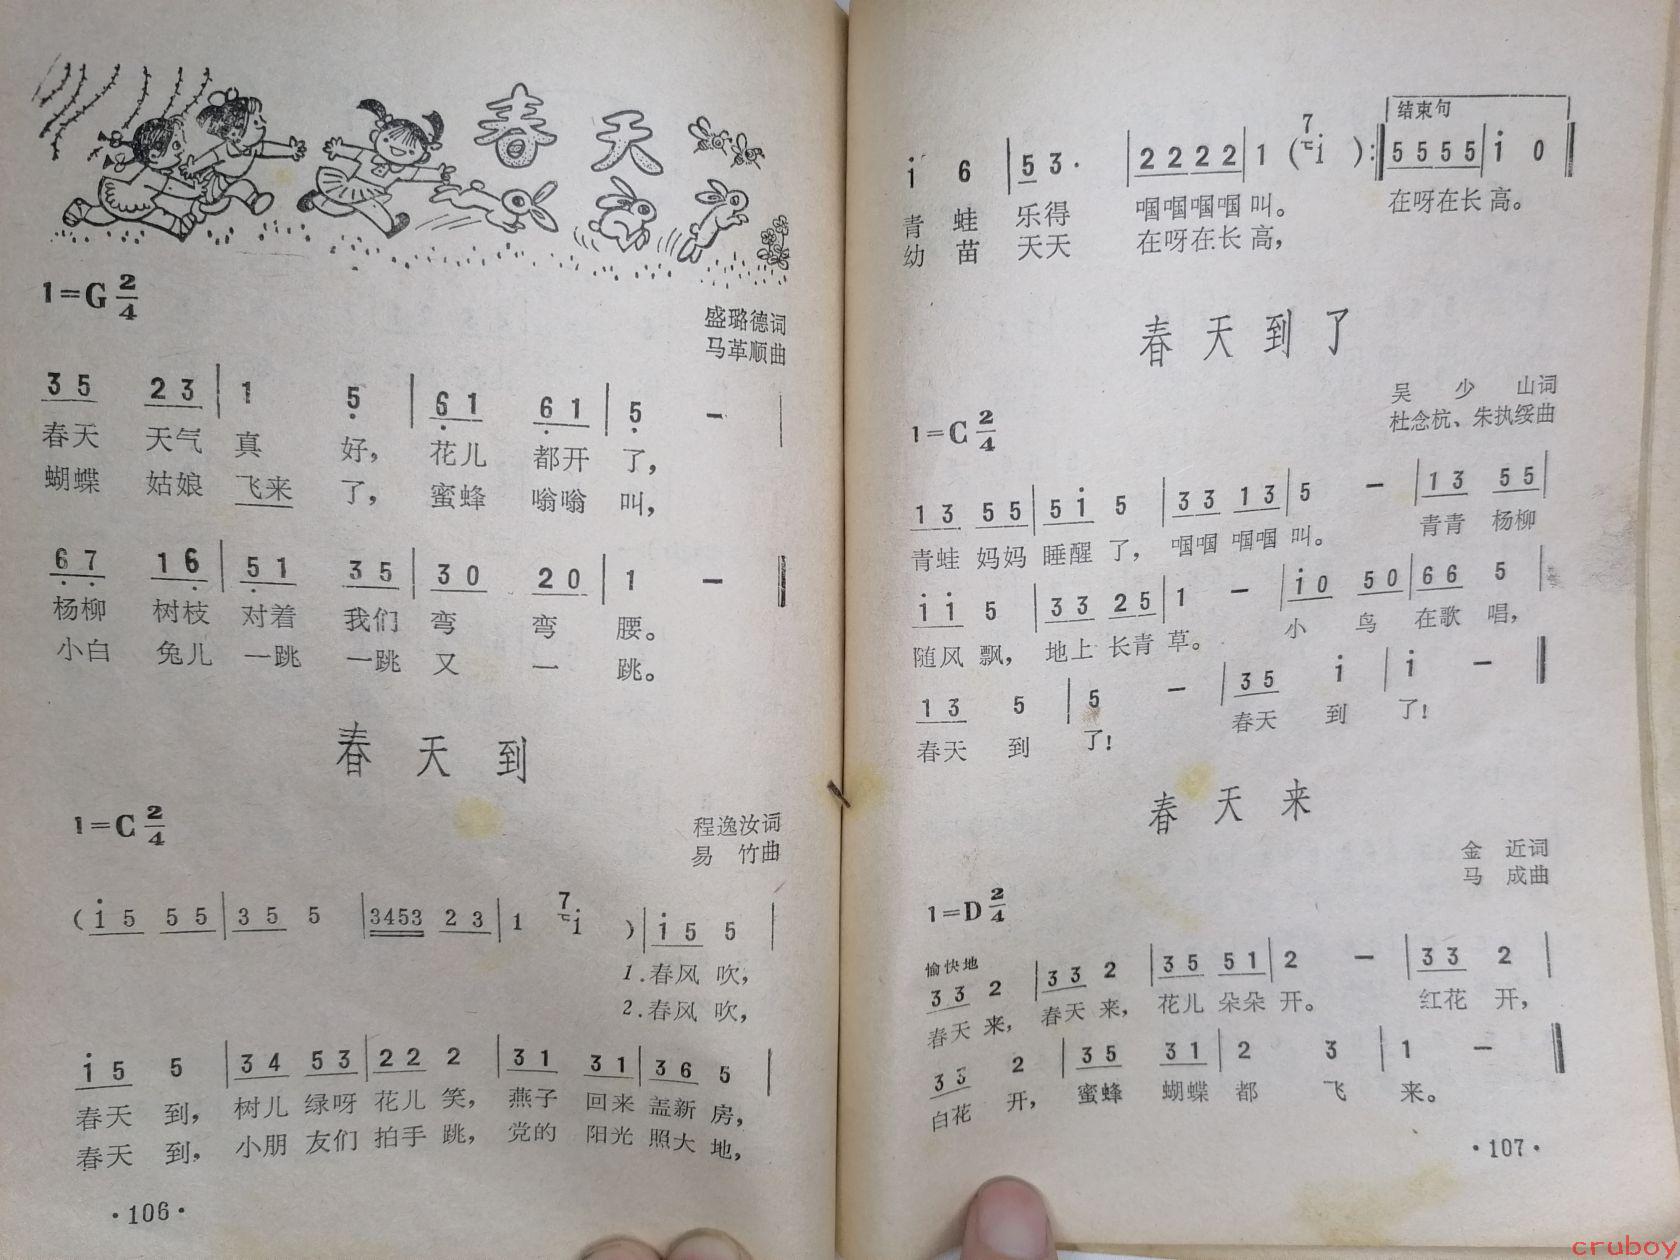 春天
1=G 2/4
盛璐德词
马革顺曲
3 5 2 3 | 1 5 | 6 1 6 1 | 5 － |
春天 天气 真 好， 花儿 都开 了，
蝴蝶 姑娘 飞来 了， 蜜蜂 嗡嗡 叫，
6 7 1 6 | 5 1 3 5 | 3 0 2 0 | 1 － ‖
杨柳 树枝 对着 我们 弯 弯 腰。
小白 兔儿 一跳 一跳 又 一 跳。
春天到
1=C 2/4
程逸汝词
易 竹曲
( i 5 5 5 | 3 5 5 | 3453 2 3 | 1 7 i ) | i 5 5 |
1.春风 吹，
2.春风 吹，
i 5 5 | 3 4 5 3 | 2 2 2 | 3 1 3 1 | 3 6 5 |
春天 到， 树儿 绿呀 花儿 笑， 燕子 回来 盖新 房，
春天 到， 小朋 友们 拍手 跳， 党的 阳光 照大 地，
·106·
结束句
i 6 | 5 3 · | 2 2 2 2 | 1 ( 7 i ) :‖ 5 5 5 5 | i 0 ‖
青 蛙 乐得 啯啯啯啯 叫。 在呀在长 高。
幼 苗 天天 在呀在长 高，
春天到了
吴 少 山词
杜念杭、朱执绥曲
1=C 2/4
1 3 5 5 | 5 i 5 | 3 3 1 3 | 5 － | 1 3 5 5 |
青蛙 妈妈 睡醒 了， 啯啯 啯啯 叫。 青青 杨柳
i i 5 | 3 3 2 5 | 1 － | i 0 5 0 | 6 6 5 |
随风 飘， 地上 长青 草。 小 鸟 在歌 唱，
1 3 5 | 5 － | 3 5 i | i － ‖
春天 到 了！ 春天 到 了！
春天来
金 近词
马 成曲
1=D 2/4
愉快地
3 3 2 | 3 3 2 | 3 5 5 1 | 2 － | 3 3 2 |
春天 来， 春天 来， 花儿 朵朵 开。 红花 开，
3 3 2 | 3 5 3 1 | 2 3 | 1 － ‖
白花 开， 蜜蜂 蝴蝶 都 飞 来。
·107·
cruboy